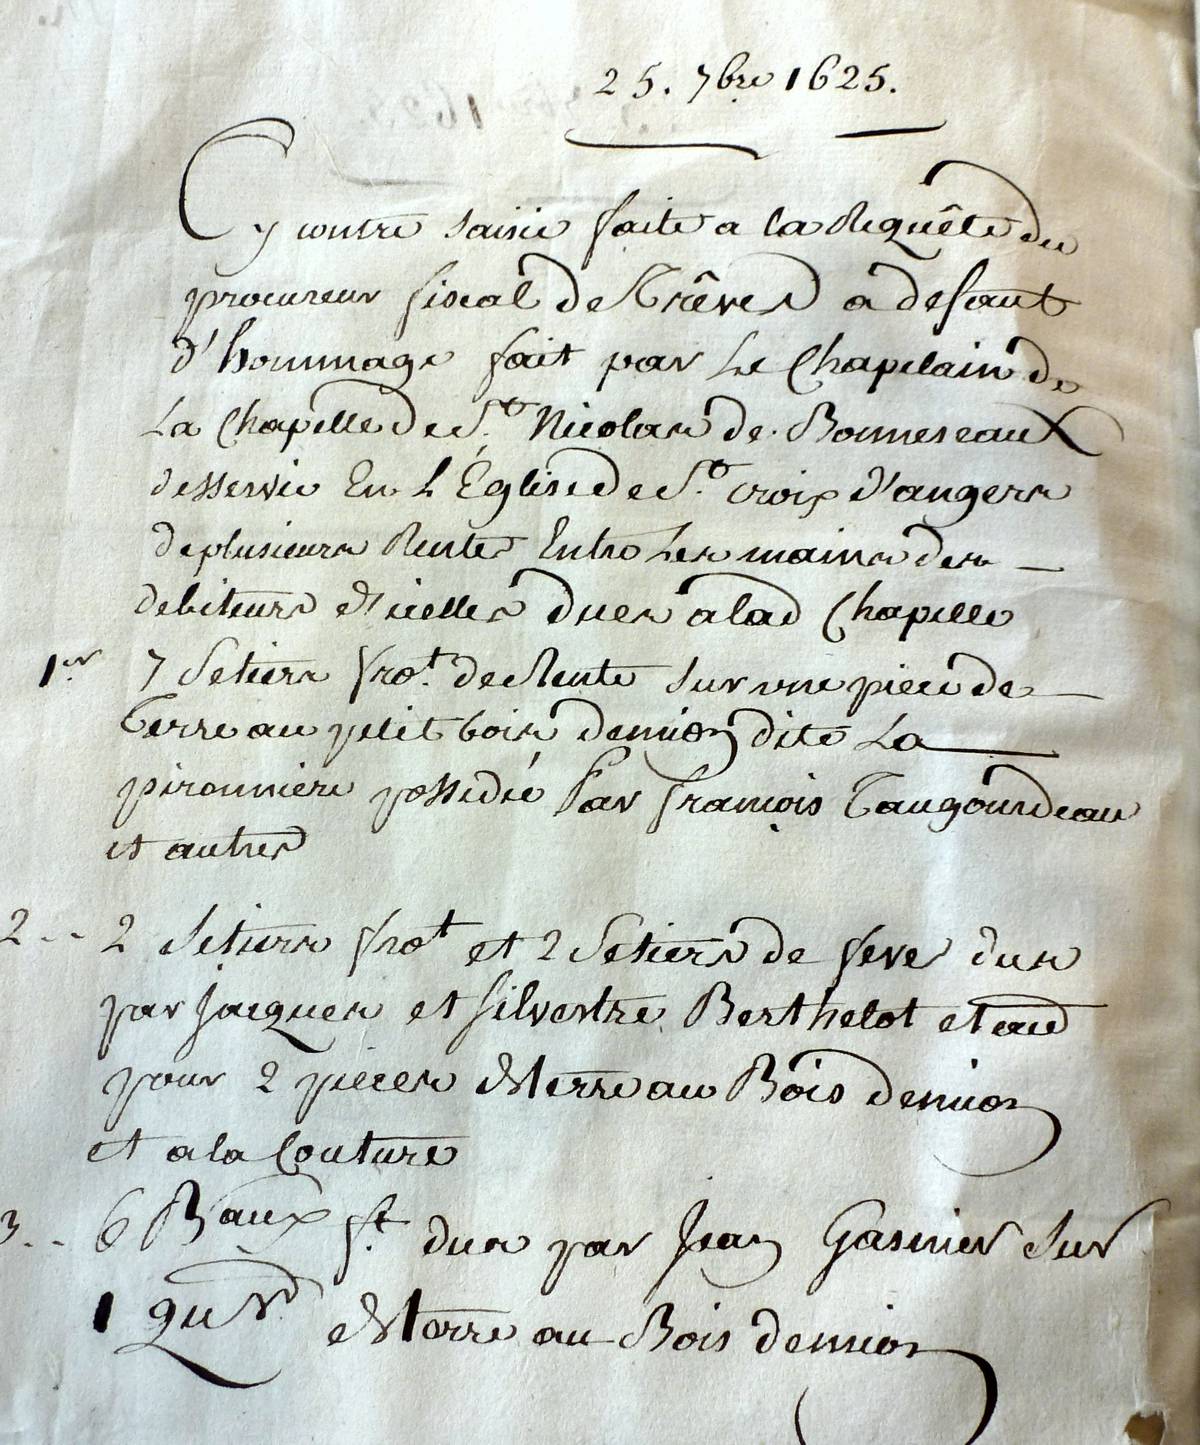 25. 7bre 1625.
Cy contre saisie faite a la Requête du
procureur fiscal de Trêves a defaut
d'hommage fait par Le Chapelain de
La Chapelle de St. Nicolas de Bonneseaux
desservie En L'Église de Ste. Croix d'angers
de plusieurs Rentes Entre Les mains des
debiteurs d'icelles dues a lad Chapelle
1er 7 Setiers fro.t de Rente sur une piece de
Terre au petit bois demion dite La
pironniere possedée Par françois Taugourdeau
et autres
2.. 2 Setiers frot et 2 Setiers de feve dus
par Jacques et Silvestre Berthelot et au
pour 2 pieces de terre au Bois demion
et a la Couture
3.. 6 Baux f.t dus par Jean Gasnier Sur
1 de terre au Bois demion